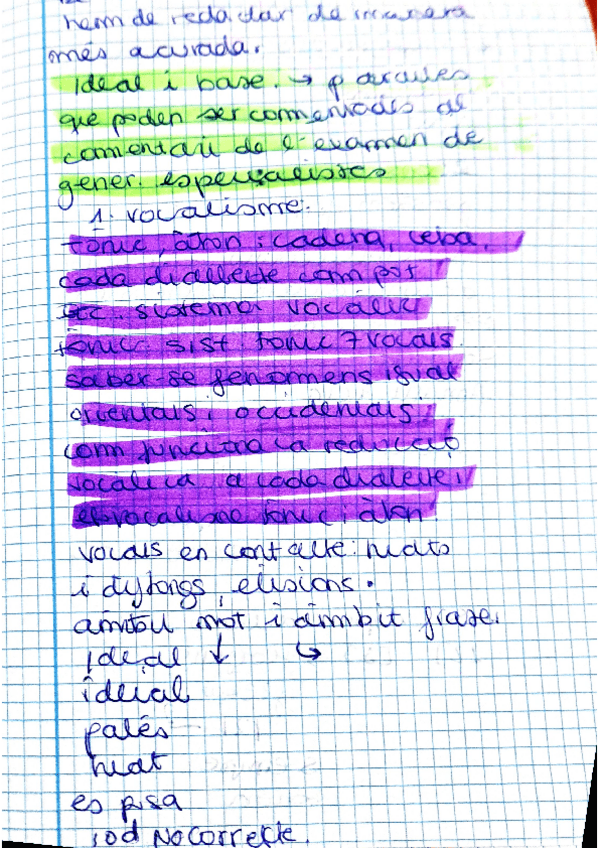 hem de redactar de manera
més acurada.
Ideal i base. → paraules
que poden ser comentades al
comentari de l'examen de
gener. especialistes
1. vocalisme.
tònic, àton: cadena, ceba,
cada dialecte com pot
sistema vocàlic
tònic. sist tònic 7 vocals
saber-se fenòmens igual
orientals i occidentals,
com funciona la reducció
vocalica a cada dialecte,
el vocalisme tònic i àton.
vocals en contacte: hiats
i diftongs, elisions.
àmbit mot i àmbit frase.
Ideal ↓ ↳
ideial
palés
hiat
es pisa
iod No correcte.